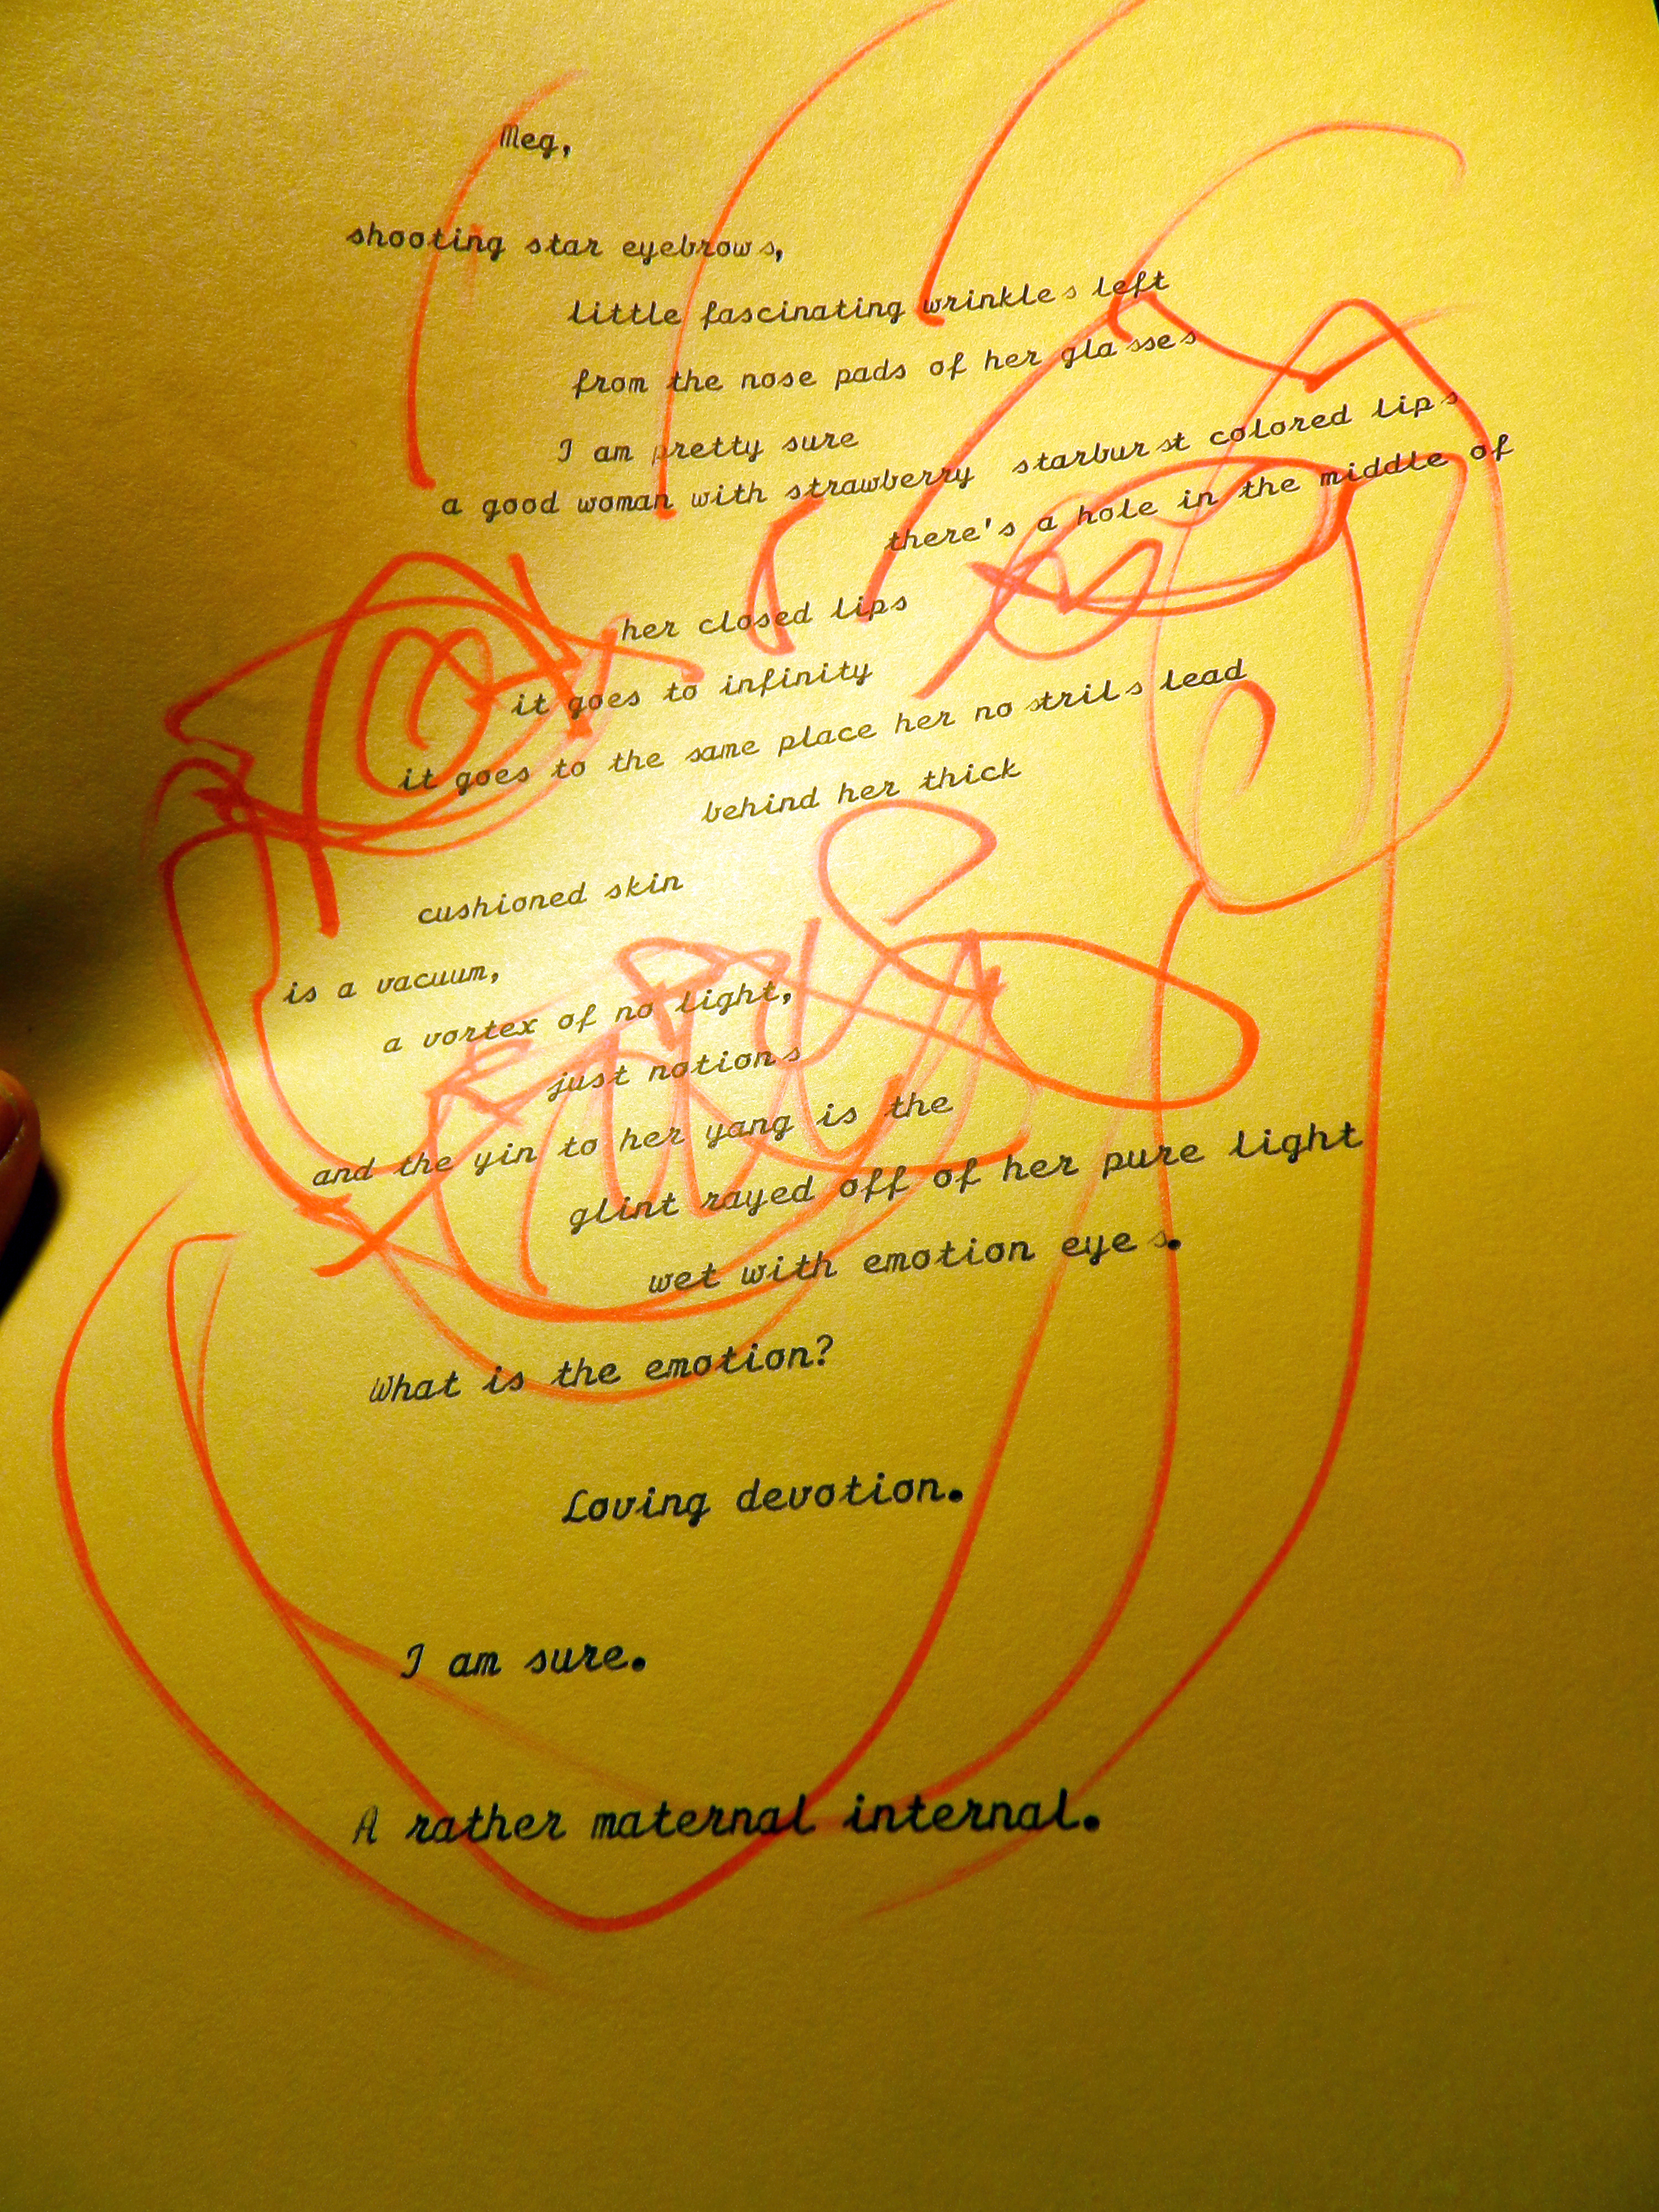 Meg,
shooting star eyebrows,
little fascinating wrinkles left
from the nose pads of her glasses
I am pretty sure
a good woman with strawberry starburst colored lips
there's a hole in the middle of
her closed lips
it goes to infinity
it goes to the same place her nostrils lead
behind her thick
cushioned skin
is a vacuum,
a vortex of no light,
just notions
and the yin to her yang is the
glint rayed off of her pure light
wet with emotion eyes.
What is the emotion?
Loving devotion.
I am sure.
A rather maternal internal.